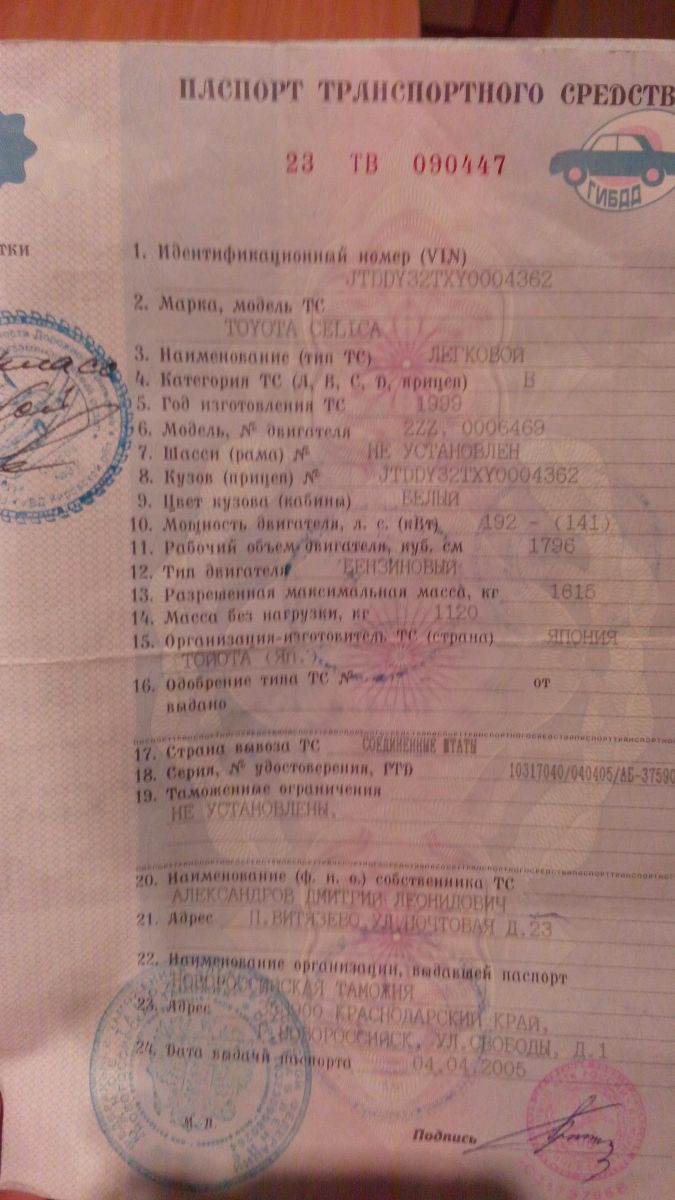 ПАСПОРТ ТРАНСПОРТНОГО СРЕДСТВ
23 ТВ 090447
ГИБДД
тки
1. Идентификационный номер (VIN)
JTDDY32TXY0004362
2. Марка, модель ТС
TOYOTA CELICA
3. Наименование (тип ТС) ЛЕГКОВОЙ
4. Категория ТС (А, В, С, D, прицеп) В
5. Год изготовления ТС 1999
6. Модель, № двигателя 2ZZ, 0006469
7. Шасси (рама) № НЕ УСТАНОВЛЕН
8. Кузов (прицеп) № JTDDY32TXY0004362
9. Цвет кузова (кабины) БЕЛЫЙ
10. Мощность двигателя, л. с. (кВт) 192 - (141)
11. Рабочий объем двигателя, куб. см 1796
12. Тип двигателя БЕНЗИНОВЫЙ
13. Разрешенная максимальная масса, кг 1615
14. Масса без нагрузки, кг 1120
15. Организация-изготовитель ТС (страна) ЯПОНИЯ
ТОЙОТА (Яп.)
16. Одобрение типа ТС № от
выдано
17. Страна вывоза ТС СОЕДИНЕННЫЕ ШТАТЫ
18. Серия, № удостоверения, ГТД 10317040/040405/АБ-37590
19. Таможенные ограничения
НЕ УСТАНОВЛЕНЫ.
20. Наименование (ф. и. о.) собственника ТС
АЛЕКСАНДРОВ ДМИТРИЙ ЛЕОНИДОВИЧ
21. Адрес П.ВИТЯЗЕВО,УЛ.ПОЧТОВАЯ Д.23
22. Наименование организации, выдавшей паспорт
НОВОРОССИЙСКАЯ ТАМОЖНЯ
23. Адрес КРАСНОДАРСКИЙ КРАЙ,
Г.НОВОРОССИЙСК, УЛ.СВОБОДЫ, Д.1
24. Дата выдачи паспорта 04.04.2005
М. П.
Подпись